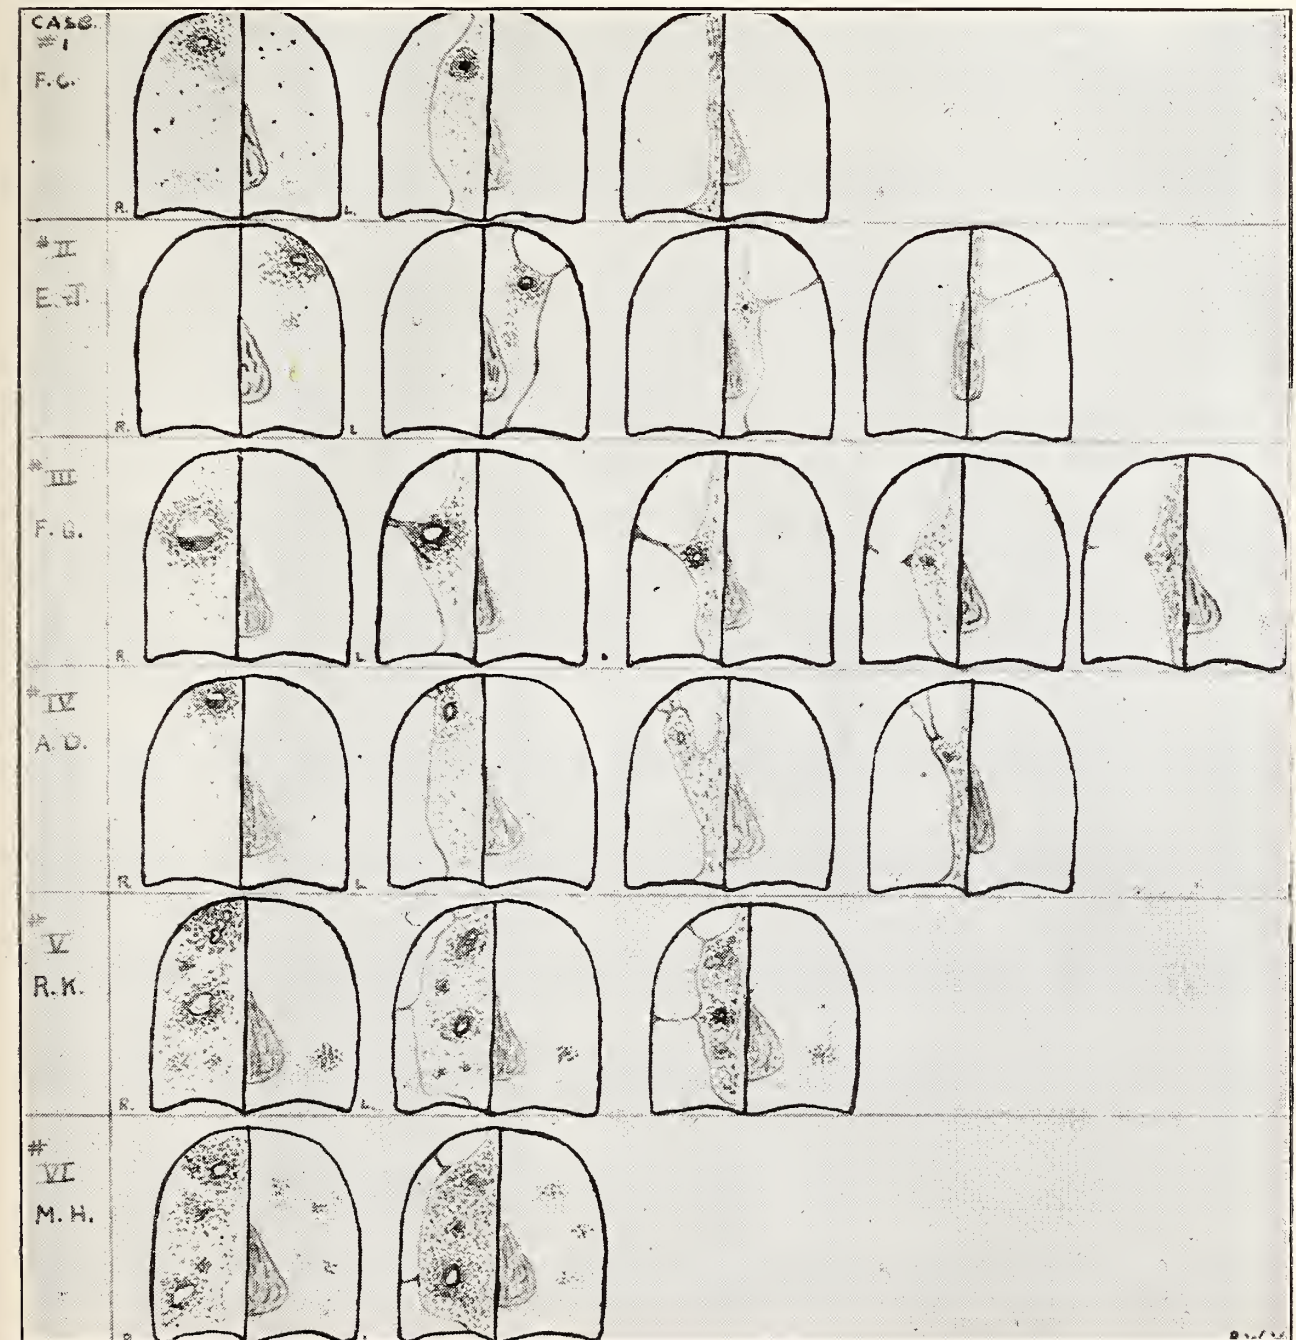 CASE.
#1
F.C.
R. L.
#II
E.J.
R. L.
#III
F.G.
R. L.
#IV
A.D.
R. L.
#V
R.K.
R. L.
#VI
M.H.